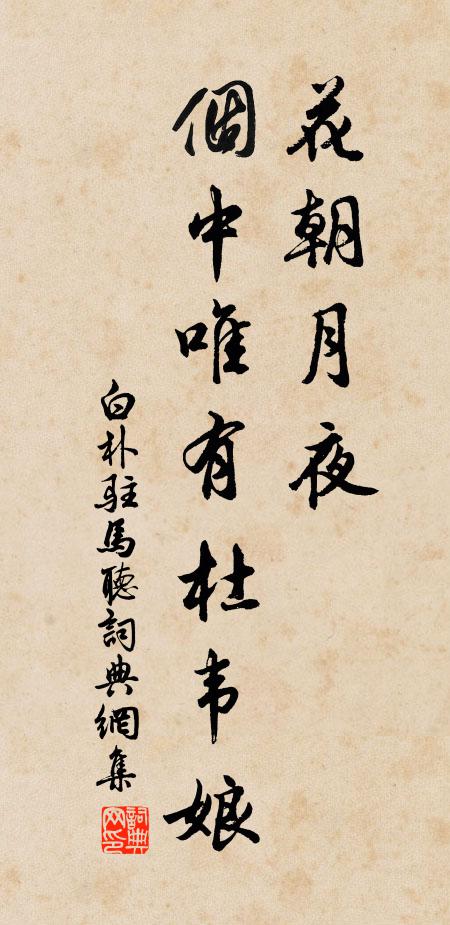 花朝月夜
個中唯有杜韦娘
白朴驻馬聽詞典網集
詞典
网印